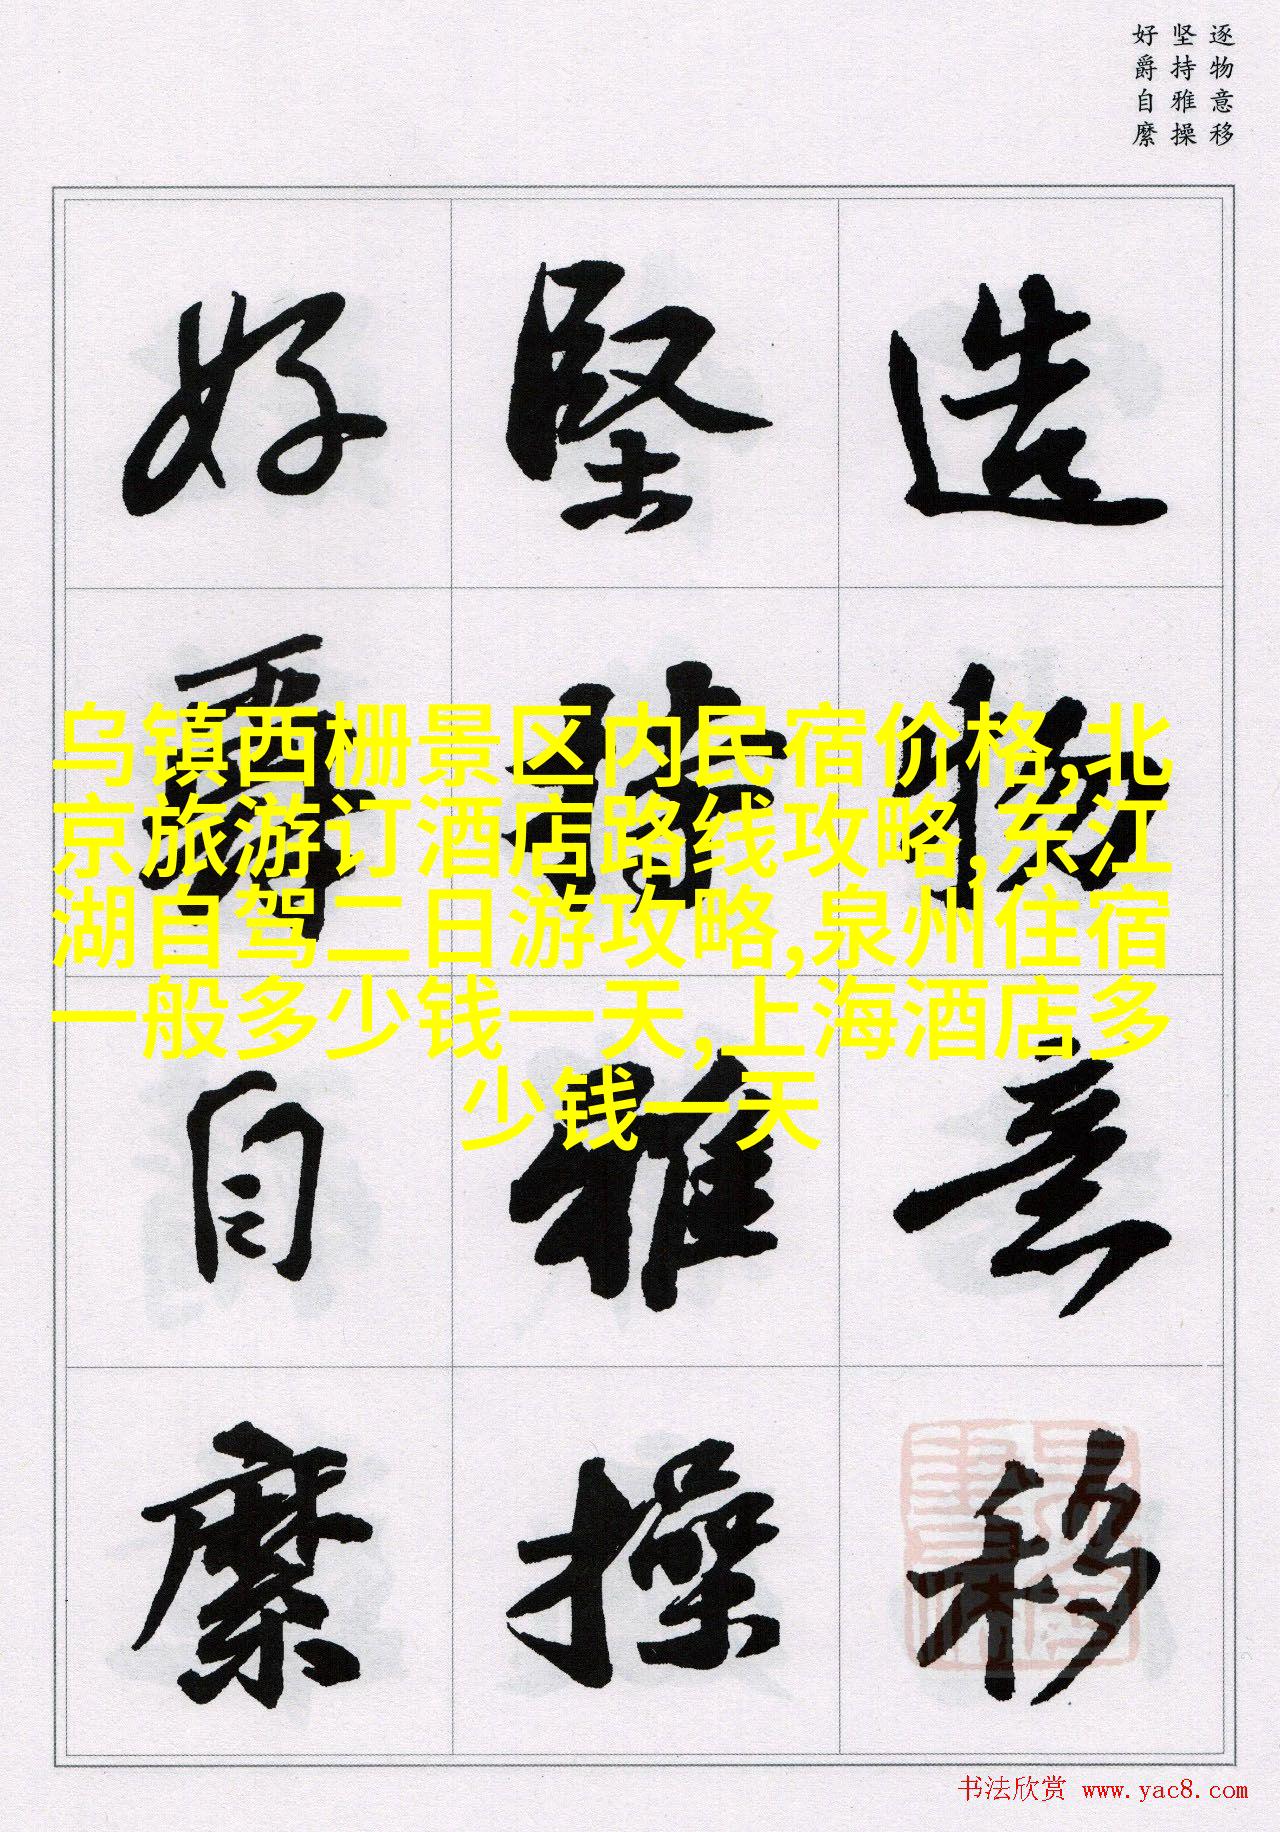 逐物意移
坚持雅操
好爵自縻
造物意移
堅持雅操
好爵自縻
乌镇西栅景区内民宿价格,北
京旅游订酒店路线攻略,东江
湖自驾二日游攻略,泉州住宿
一般多少钱一天,上海酒店多
少钱一天
书法欣赏 www.yac8.com